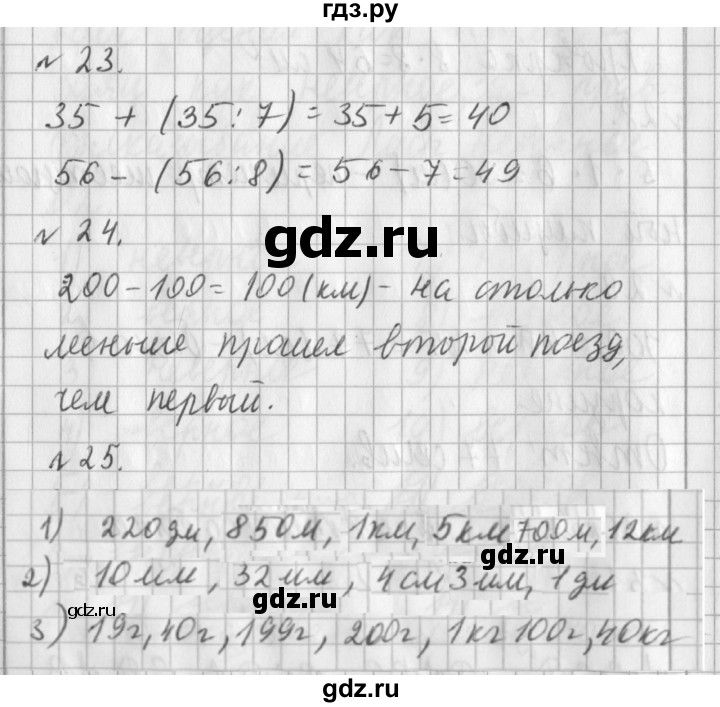 гдз.ру
№ 23.
35 + (35:7) = 35 + 5 = 40
56 - (56:8) = 56 - 7 = 49
№ 24.
gdz.ru
200 - 100 = 100 (км) - на столько
меньше прошел второй поезд,
чем первый.
№ 25.
1) 220 дм, 850 м, 1 км, 5 км 700 м, 12 км
2) 10 мм, 32 мм, 4 см 3 мм, 1 дм
gdz.ru
gdz.ru
3) 19 г, 40 г, 199 г, 200 г, 1 кг 100 г, 40 кг
gdz.ru